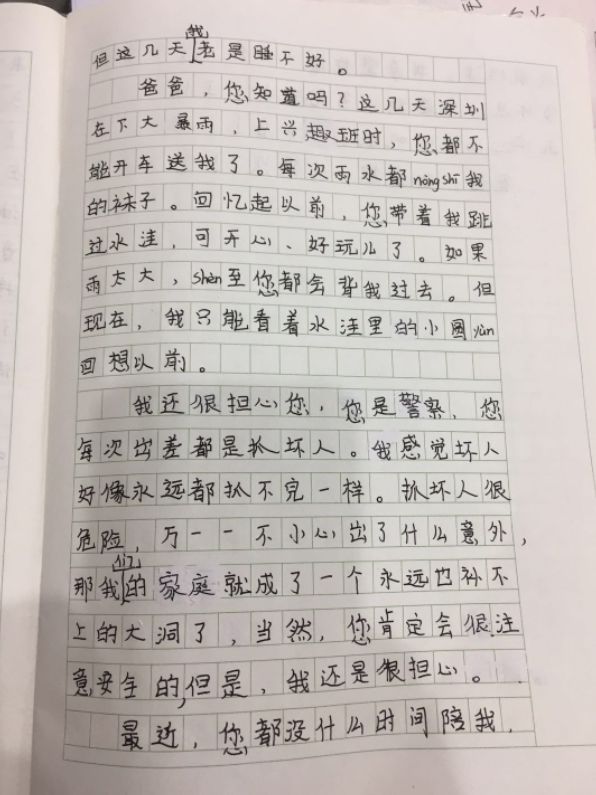 但这几天我老是睡不好。
爸爸，您知道吗？这几天深圳
在下大暴雨，上兴趣班时，您都不
能开车送我了。每次雨水都nòng shī我
的袜子。回忆起以前，您带着我跳
过水洼，可开心、好玩儿了。如果
雨太大，shèn至您都会背我过去。但
现在，我只能看着水洼里的小圈yùn
回想以前。
我还很担心您，您是警察，您
每次出差都是抓坏人。我感觉坏人
好像永远都抓不完一样。抓坏人很
危险，万一一不小心出了什么意外，
那我们的家庭就成了一个永远也补不
上的大洞了，当然，您肯定会很注
意安全的，但是，我还是很担心。
最近，您都没什么时间陪我，